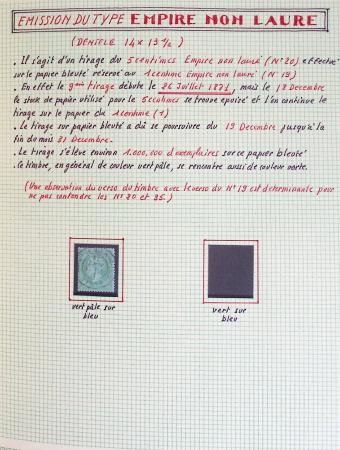 EMISSION DU TYPE EMPIRE NON LAURE
(DENTELE 14 x 13 ½)
. Il s'agit d'un tirage du 5 centimes Empire non lauré (N°20) effectué
sur le papier bleuté réservé au 1 centime Empire non lauré (N°19)
. En effet le 9ème tirage débute le 26 Juillet 1871, mais le 18 Decembre
le stock de papier utilisé pour le 5 centimes se trouve épuisé et l'on continue le
tirage sur le papier du 1 centime (1)
. Le tirage sur papier bleuté a dû se poursuivre du 19 Decembre jusqu'à la
fin du mois 31 Decembre.
. Le tirage s'élève environ 1.000.000 d'exemplaires sur ce papier bleuté
. Le timbre, en général de couleur vert pâle, se rencontre aussi de couleur verte.
(Une observation du verso du timbre avec le verso du N°19 est déterminante pour
ne pas confondre les N° 20 et 35.)
vert pâle sur
bleu
vert sur
bleu